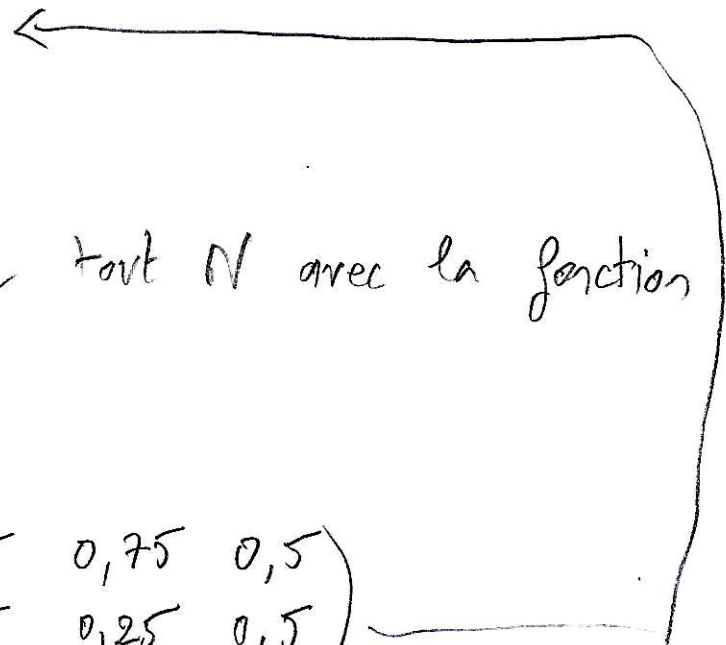 tout N avec la fonction
0,75 0,5
0,25 0,5